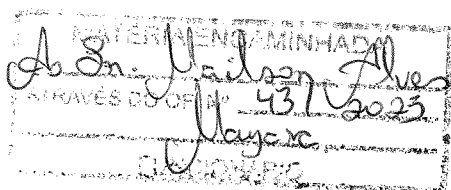 MATÉRIA ENCAMINHADA
Ao Sr. Mailson Alves
ATRAVÉS DO OF. Nº 43/2023
Mayara
FUNCIONÁRIO